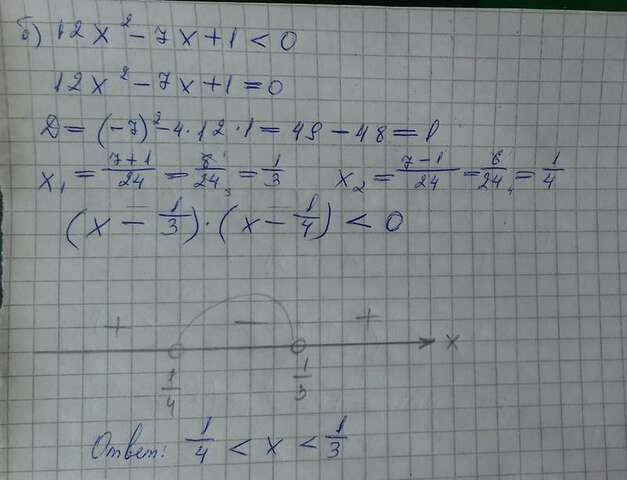 б) 12x² - 7x + 1 < 0
12x² - 7x + 1 = 0
D = (-7)² - 4 · 12 · 1 = 49 - 48 = 1
x₁ = 7+1/24 = 8/24₃ = 1/3 x₂ = 7-1/24 = 6/24₄ = 1/4
(x - 1/3) · (x - 1/4) < 0
+ - +
x
1/4 1/3
Ответ: 1/4 < x < 1/3